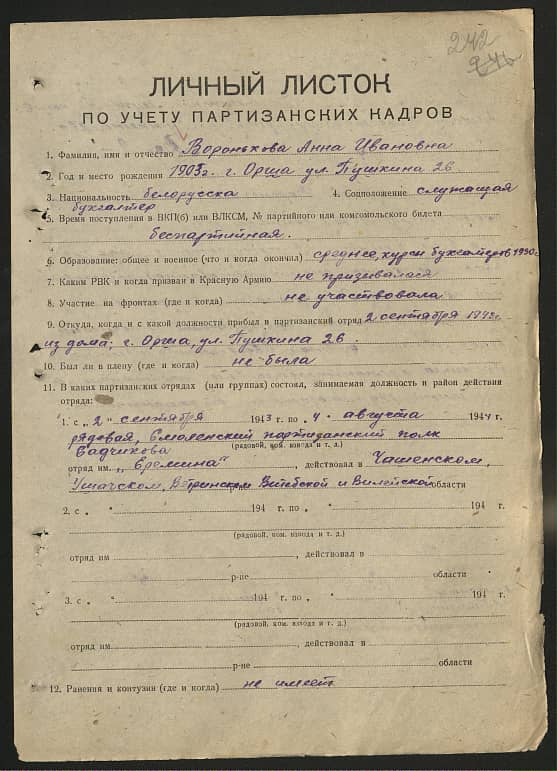 242
ЛИЧНЫЙ ЛИСТОК
ПО УЧЕТУ ПАРТИЗАНСКИХ КАДРОВ
1. Фамилия, имя и отчество Воронькова Анна Ивановна
2. Год и место рождения 1903г. г. Орша ул. Пушкина 26
3. Национальность белорусска 4. Соцположение служащая
бухгалтер
5. Время поступления в ВКП(б) или ВЛКСМ, № партийного или комсомольского билета
беспартийная.
6. Образование: общее и военное (что и когда окончил) среднее, курсы бухгалтеров 1930г.
7. Каким РВК и когда призван в Красную Армию не призывалася
8. Участие на фронтах (где и когда) не участвовала
9. Откуда, когда и с какой должности прибыл в партизанский отряд 2 сентября 1943г.
из дома: г. Орша, ул. Пушкина 26.
10. Был ли в плену (где и когда) не была
11. В каких партизанских отрядах (или группах) состоял, занимаемая должность и район действия
отряда:
1. с „2" сентября 1943 г. по „4" августа 1944 г.
рядовая, Смоленский партизанский полк
(рядовой, ком. взвода и т. д.)
Садчикова
отряд им. „Еремина", действовал в Чашенском,
Ушачском, Ветринском Витебской и Вилейской области
2. с „ " 194 г. по „ " 194 г.
(рядовой, ком. взвода и т. д.)
отряд им , действовал в
р-не области
3. с „ " 194 г. по „ " 194 г.
(рядовой, ком. взвода и т. д.)
отряд им. , действовал в
р-не области
12. Ранения и контузии (где и когда) не имеет